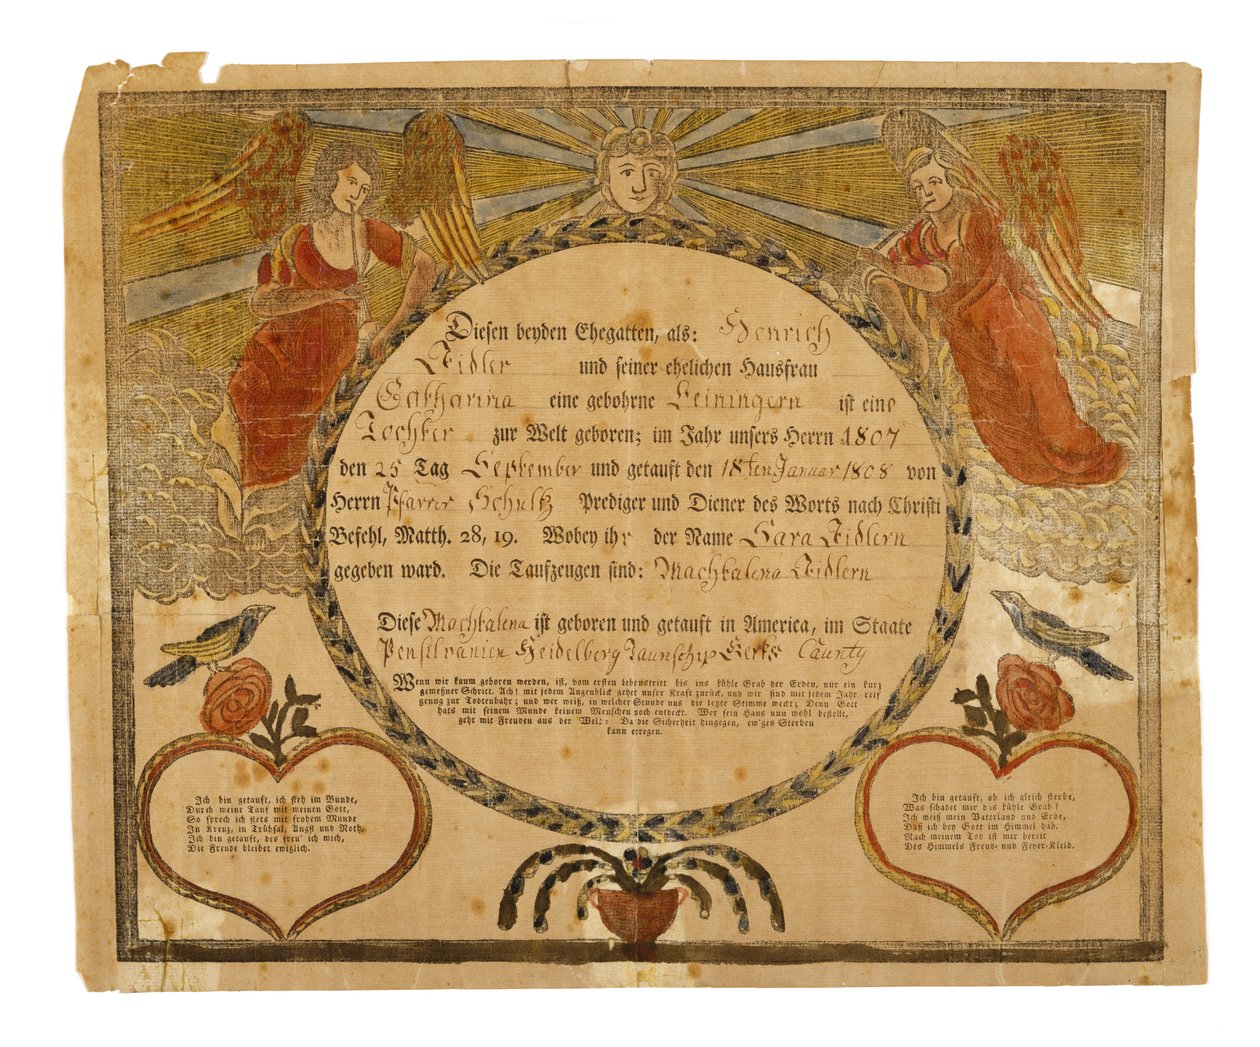 Diesen beyden Ehegatten, als: Henrich
Fidler und seiner ehelichen Hausfrau
Catharina eine gebohrne Leiningern ist eine
Tochter zur Welt geboren; im Jahr unsers Herrn 1807
den 25 Tag September und getauft den 18ten Januar 1808 von
Herrn Pfarrer Schultz Prediger und Diener des Worts nach Christi
Befehl, Matth. 28, 19. Wobey ihr der Name Sara Fidlern
gegeben ward. Die Taufzeugen sind: Machtalena Fidlern
Diese Machtalena ist geboren und getauft in America, im Staate
Pensilvanien Heidelberg Taunschip Berks Caunty
Wenn wir kaum geboren werden, ist, vom ersten Lebenstritt bis ins kühle Grab der Erden, nur ein kurz
gemeßner Schritt. Ach! mit jedem Augenblick gehet unsre Kraft zurück, und wir sind mit jedem Jahr reif
genug zur Todtenbahr; und wer weiß, in welcher Stunde uns die letzte Stimme weckt; Denn Gott
hats mit seinem Munde keinem Menschen noch entdeckt. Wer sein Haus nun wohl bestellt,
geht mit Freuden aus der Welt: Da die Sicherheit hingegen, ew'ges Sterben
kann erregen.
Ich bin getauft, ich steh im Bunde,
Durch meine Tauf mit meinen Gott,
So sprech ich stets mit frohem Munde
In Kreuz, in Trübsal, Angst und Noth.
Ich bin getauft, des freu' ich mich,
Die Freude bleibet ewiglich.
Ich bin getauft, ob ich gleich sterbe,
Was schadet mir das kühle Grab?
Ich weiß mein Vaterland und Erbe,
Daß ich bey Gott im Himmel hab.
Nach meinem Tod ist mir bereit
Des Himmels Freud- und Feyer-Kleid.